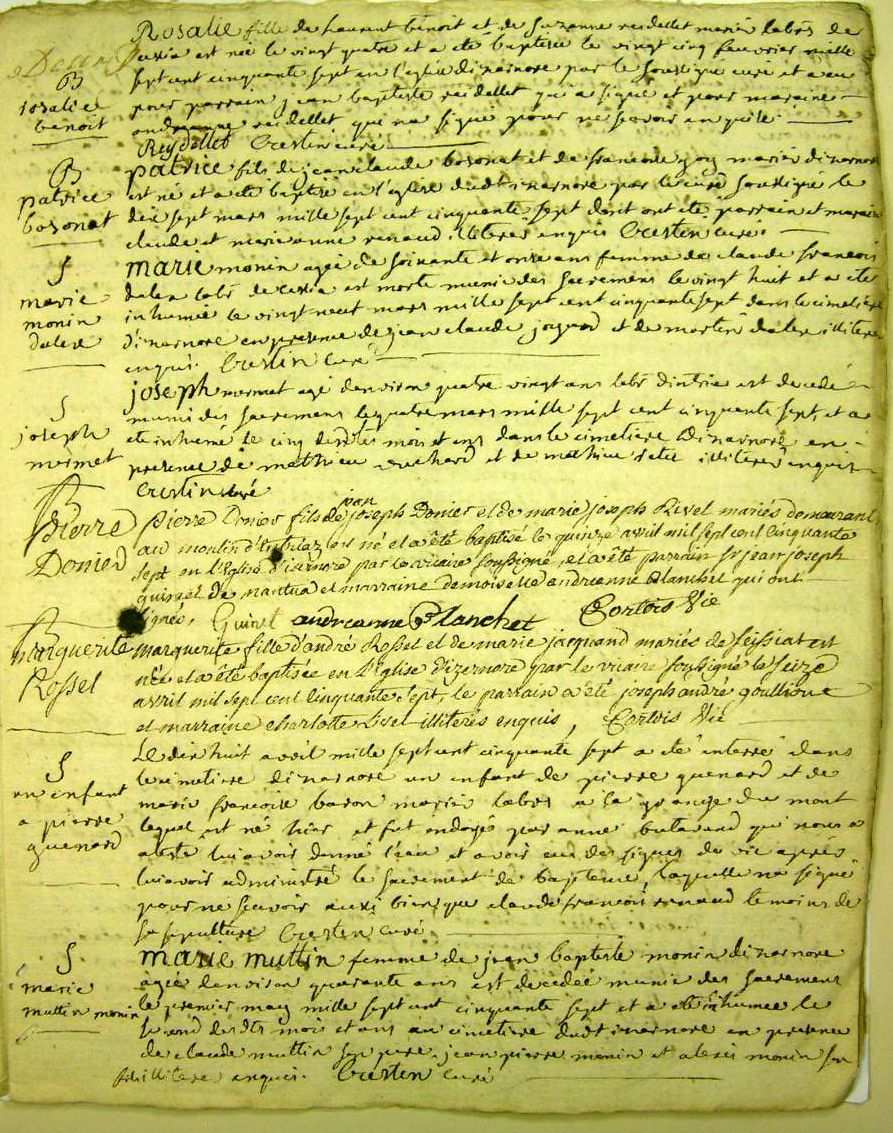 Rosalie fille de Laurent benoit et de suzanne reidellet mariés labrs de
cessia est née le vingt quatre et a eté baptisée le vingt cinq feuvrier mille
sept cent cinquante sept en l'eglise dizarnore par le soussigné curé et a eu
pour parrain jean baptiste reidellet qui a signé et pour maraine
reidellet qui na signé pour ne scavoir enquise
B
rosalie
benoit
Reydellet Crestin curé
patrice fils de jean claude bozonat et de francoise goy mariés dizarnore
est né et a eté baptisé en l'eglise dudt izarnore par le curé soussigné le
dix sept mars mille sept cent cinquante sept dont ont eté parrain et maraine
claude et marie anne renaud illiteres enquis Crestin curé
B
patrice
bozonat
marie monin agée de soixante et onze ans femme de claude francois
dalex labr de cessia est morte munie des sacremens le vingt huit et a eté
inhumée le vingt neuf mars mille sept cent cinquante sept dans le cimetiere
dizarnore en presence de jean claude joyard et de martin dalex illiteres
enquis Crestin curé
S
marie
monin
dalex
joseph mermet agé denviron quatre vingt ans labr dintria est decedé
muni des sacremens le quatre mars mille sept cent cinquante sept et a
eté inhumé le cinq desdts mois et ans dans le cimetiere dizarnore en
presence de mathieu et de mathieu illiteres enquis
Crestin curé
S
joseph
mermet
Pierre Donier fils de jean joseph Donier et de marie joseph Livet mariés demeurant
au moulin d'intriaz est né et a été baptisé le quinze avril mil sept cent cinquante
sept en l'Eglise d'izernore par le vicaire soussigné, et a été parrain sr jean joseph
quinet de nantua et marraine demoiselle andreanne Blanchet qui ont
signés, Guinet andreanne Blanchet Cortois Vic
B
Pierre
Donier
marguerite fille d'andré Rossel et de marie jacquand mariés de seissiat est
née et a été baptisée en l'Eglise d'izernore par le vicaire soussigné le seize
avril mil sept cent cinquante sept, le parrain a été joseph andré goullioux
et marraine charlotte Livet illiterés enquis, Cortois Vic
B
Marguerite
Rossel
Le dix huit avril mille sept cent cinquante sept a eté enterré dans
le cimetiere dizarnore un enfant de pierre guenard et de
marie francoise baron mariés labrs a la grange du mont
lequel est né hier et fut endoyé par anne butavand qui nous a
atesté lui avoir donné l'eau et avoir eu des signes de vie après
lui avoir administré le sacrement de bapteme, laquelle na signé
pour ne scavoir aussi bien que claude francois renaud temoins de
sa sepulture Crestin curé
S
un enfant
a pierre
guenard
marie muttin femme de jean baptiste monin dizarnore
agée denviron quarante ans est decedée munie des sacremens
le premier may mille sept cent cinquante sept et a eté inhumée le
second desdts mois et ans au cimetiere dudt izarnore en presence
de claude muttin son pere, jean pierre monin et alexis monin son
fils illiteres enquis. Crestin curé
S
marie
muttin monin